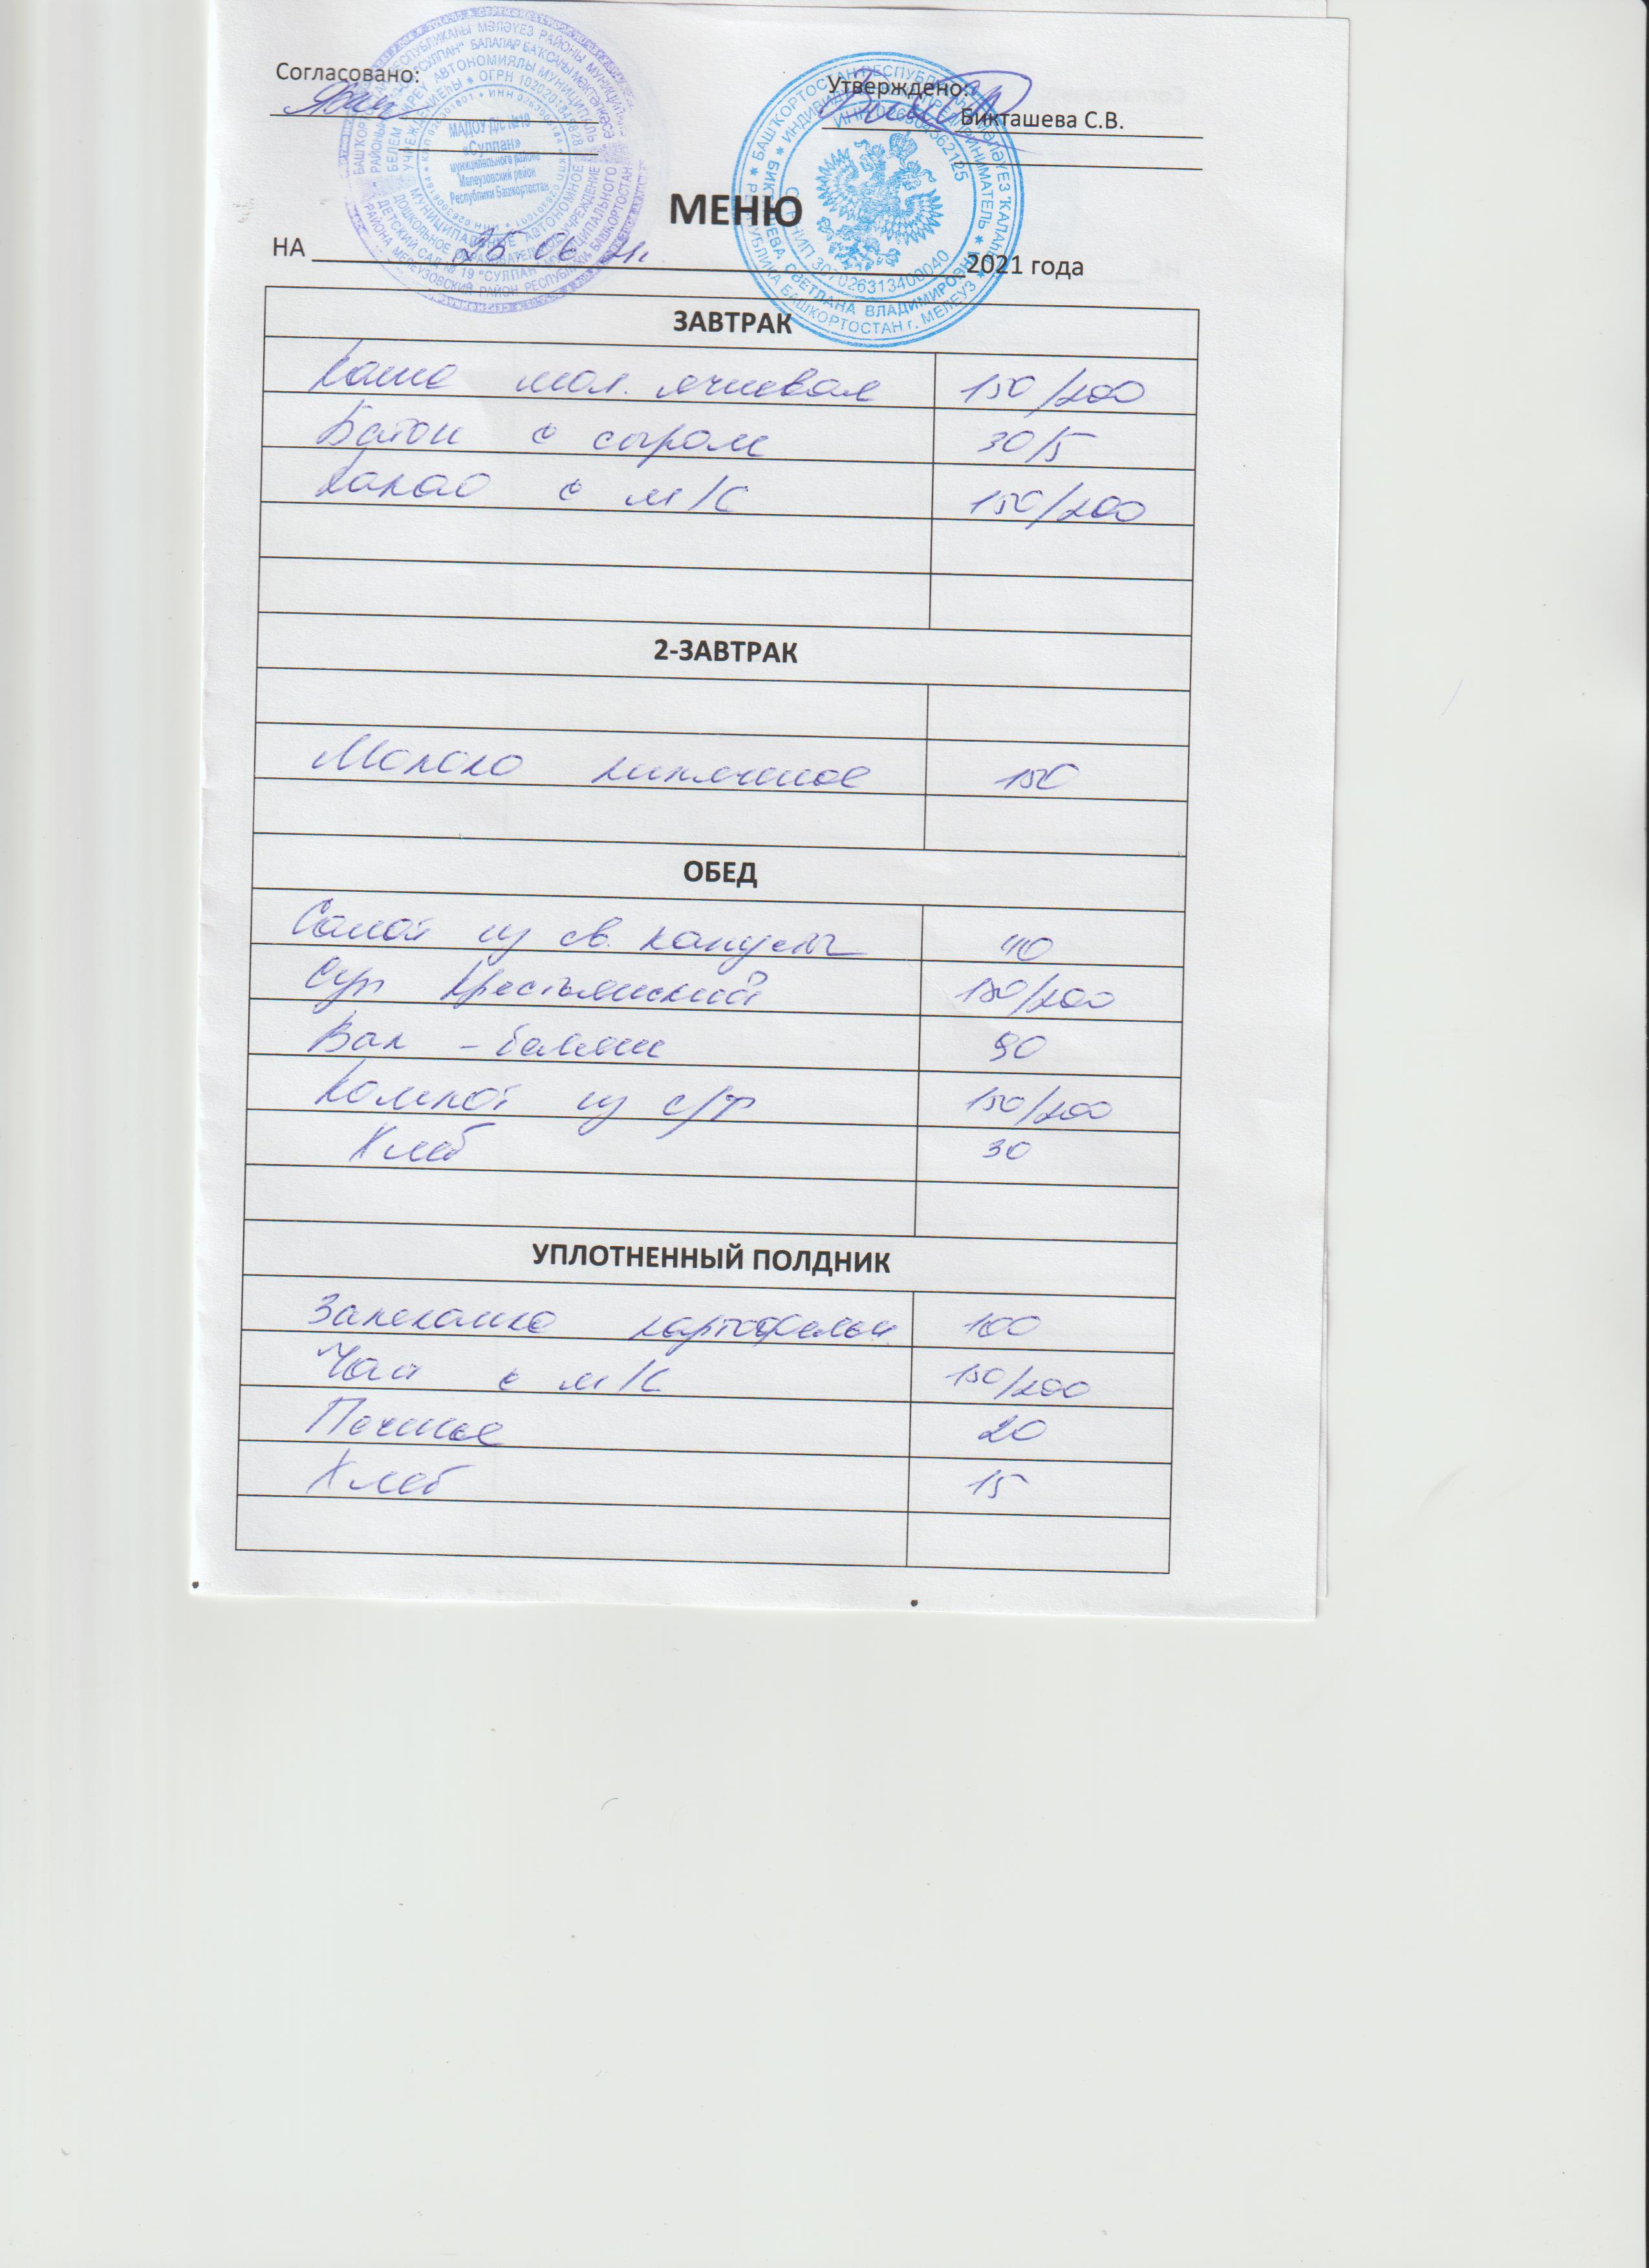 Согласовано:
Утверждено:
Бикташева С.В.
МАДОУ Д/с №19
«Сулпан»
муниципального района
Мелеузовский район
Республики Башкортостан
МЕНЮ
НА 25 06 21. 2021 года
ЗАВТРАК
Каша мол. ячневая 150/200
Батон с сыром 30/5
Какао с м/с 150/200
2-ЗАВТРАК
Молоко кипяченое 150
ОБЕД
Салат из св. капусты 40
Суп крестьянский 150/200
Вак - балиш 90
Компот из с/ф 150/200
Хлеб 30
УПЛОТНЕННЫЙ ПОЛДНИК
Запеканка картофельн 100
Чай с м/с 150/200
Печенье 20
Хлеб 15